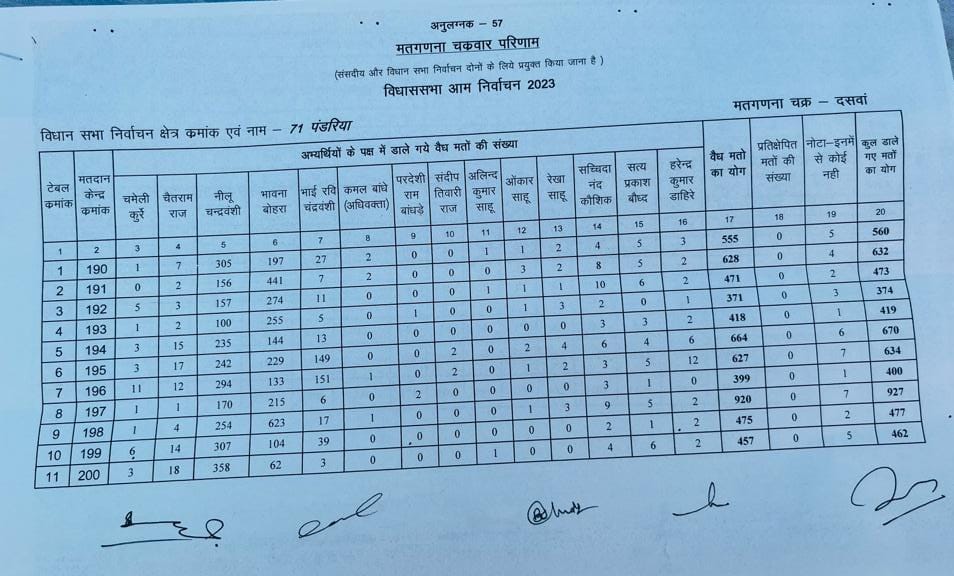 अनुलग्नक – 57
मतगणना चक्रवार परिणाम
(संसदीय और विधान सभा निर्वाचन दोनों के लिये प्रयुक्त किया जाना है )
विधाससभा आम निर्वाचन 2023
मतगणना चक्र – दसवां
विधान सभा निर्वाचन क्षेत्र कमांक एवं नाम – 71 पंडरिया
टेबल कमांक
मतदान केन्द्र कमांक
अभ्यर्थियों के पक्ष में डाले गये वैध मतों की संख्या
चमेली कुर्रे
चैतराम राज
नीलू चन्द्रवंशी
भावना बोहरा
भाई रवि चंद्रवंशी
कमल बांधे (अधिवक्ता)
परदेशी राम बांधड़े
संदीप तिवारी राज
अलिन्द कुमार साहू
ओंकार साहू
रेखा साहू
सच्चिदा नंद कौशिक
सत्य प्रकाश बौध्द
हरेन्द्र कुमार डाहिरे
वैध मतो का योग
प्रतिक्षेपित मतों की संख्या
नोटा–इनमें से कोई नही
कुल डाले गए मतों का योग
1 2 3 4 5 6 7 8 9 10 11 12 13 14 15 16 17 18 19 20
1 190 1 7 305 197 27 2 0 0 1 1 2 4 5 3 555 0 5 560
2 191 0 2 156 441 7 2 0 0 0 3 2 8 5 2 628 0 4 632
3 192 5 3 157 274 11 0 0 0 1 1 1 10 6 2 471 0 2 473
4 193 1 2 100 255 5 0 1 0 0 1 3 2 0 1 371 0 3 374
5 194 3 15 235 144 13 0 0 0 0 0 0 3 3 2 418 0 1 419
6 195 3 17 242 229 149 0 0 2 0 2 4 6 4 6 664 0 6 670
7 196 11 12 294 133 151 1 0 2 0 1 2 3 5 12 627 0 7 634
8 197 1 1 170 215 6 0 2 0 0 0 0 3 1 0 399 0 1 400
9 198 1 4 254 623 17 1 0 0 0 1 3 9 5 2 920 0 7 927
10 199 6 14 307 104 39 0 0 0 0 0 0 2 1 2 475 0 2 477
11 200 3 18 358 62 3 0 0 0 1 0 0 4 6 2 457 0 5 462